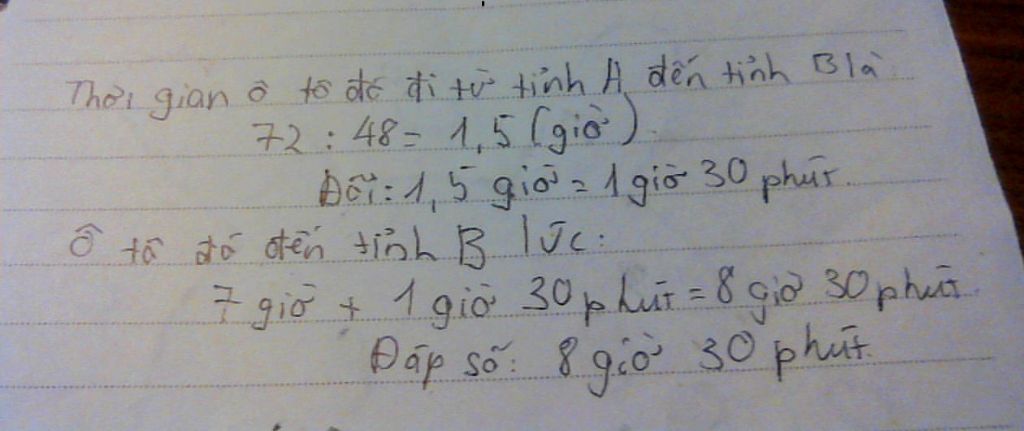 Thời gian ô tô đó đi từ tỉnh A đến tỉnh B là
72 : 48 = 1,5 (giờ).
Đổi: 1,5 giờ = 1 giờ 30 phút.
Ô tô đó đến tỉnh B lúc:
7 giờ + 1 giờ 30 phút = 8 giờ 30 phút.
Đáp số: 8 giờ 30 phút.